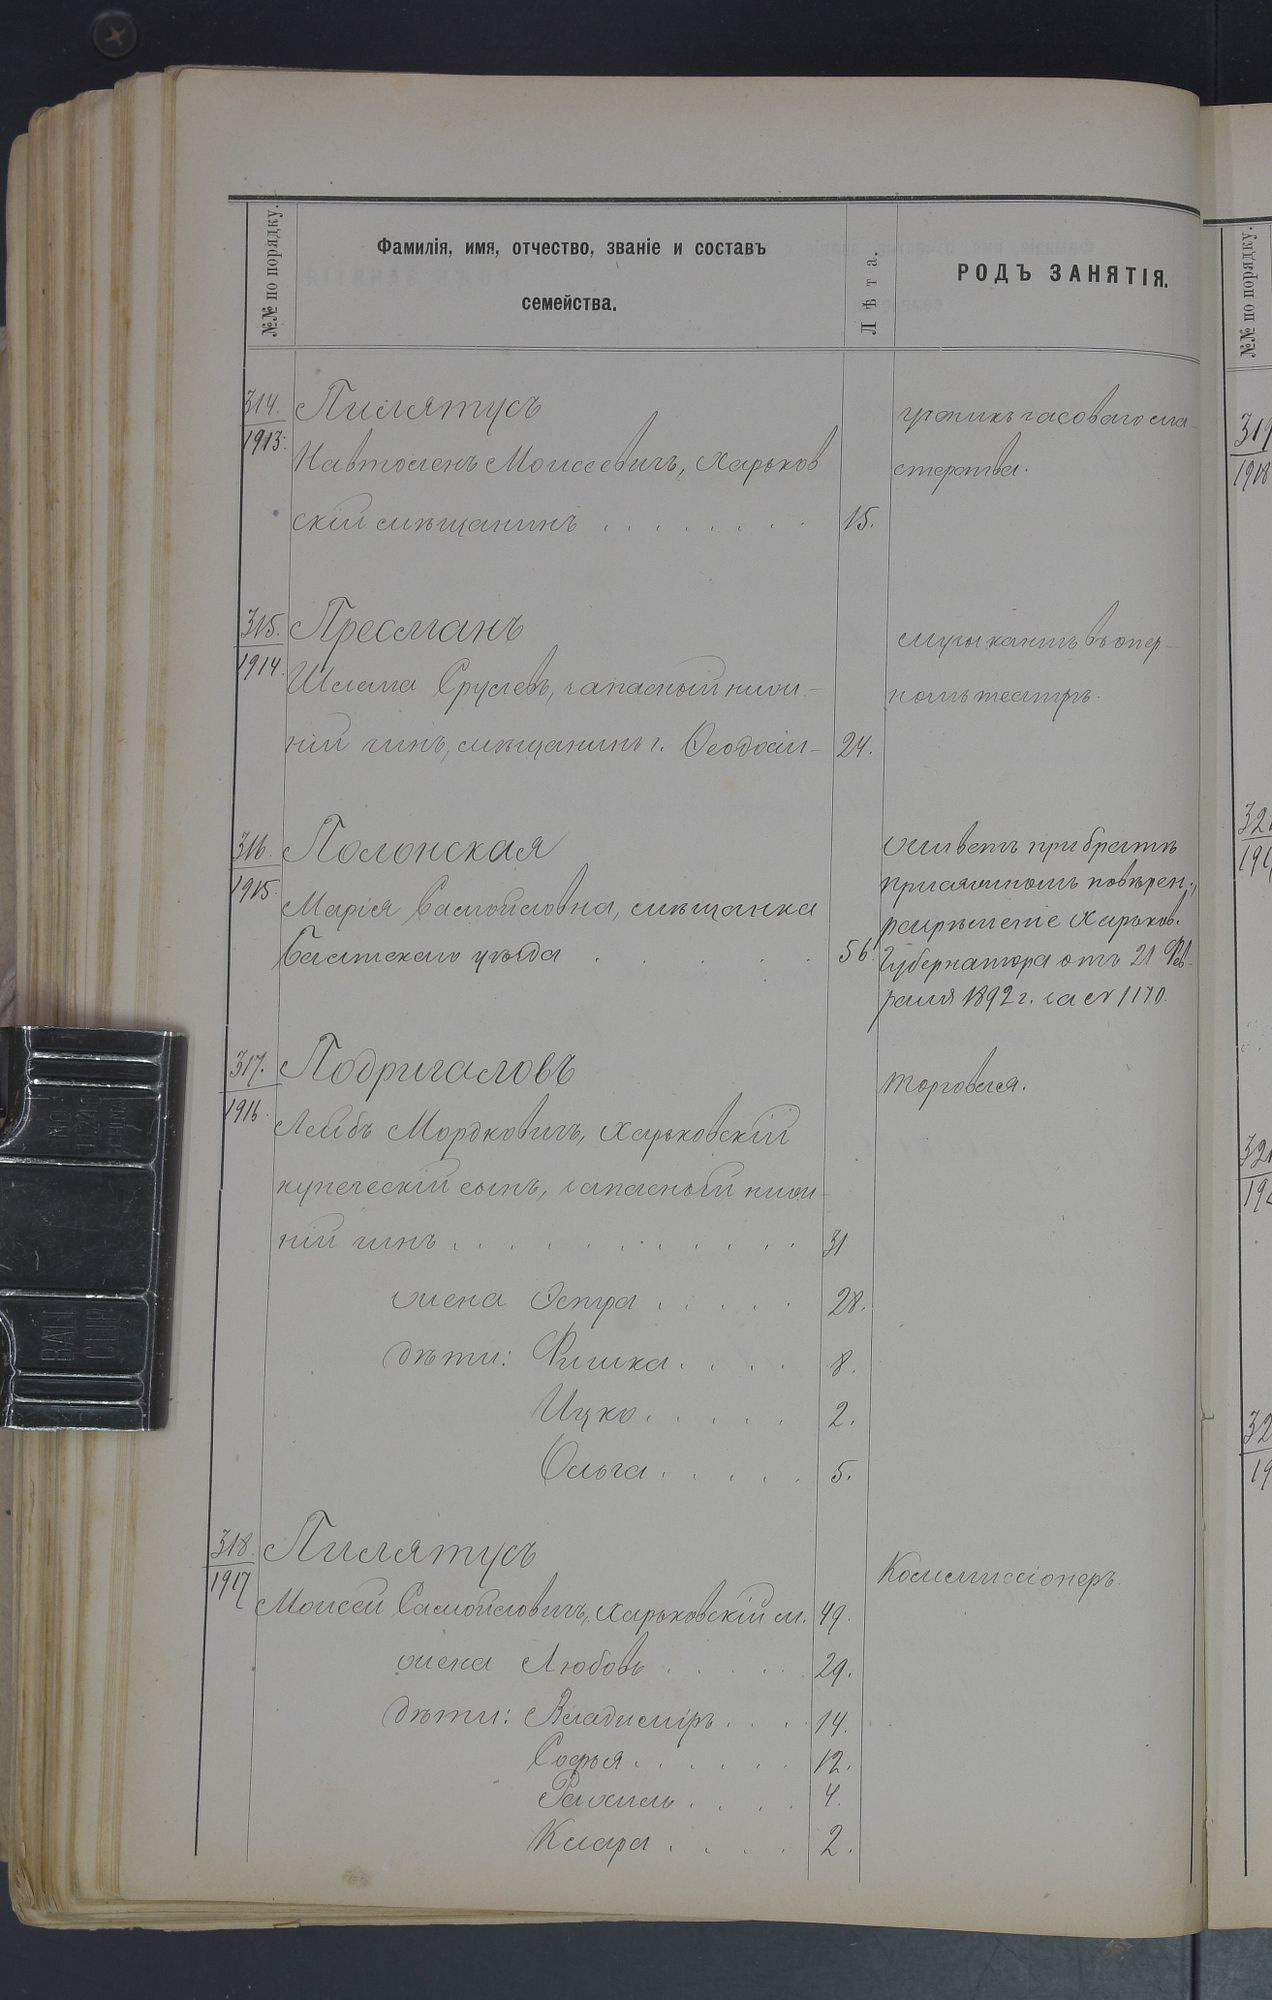 №№ по порядку.
Фамилія, имя, отчество, званіе и составъ
семейства.
Лѣта.
РОДЪ ЗАНЯТІЯ.
314.
1913.
Пилятусъ
Навтоленъ Моисеевичъ, Харьков
скій мѣщанинъ . . . . . . . 15.
ученикъ часоваго ма-
стерства.
315.
1914.
Пресманъ
Шлема Срулевъ, запасный ниж-
ній чинъ, мѣщанинъ г. Ѳеодосіи- 24.
музыкантъ въ опер-
номъ театрѣ.
316.
1915.
Полонская
Марія Самойловна, мѣщанка
Балтскаго уѣзда . . . . . 56.
живетъ при братѣ
присяжномъ повѣрен.,
разрѣшеніе Харьков.
Губернатора отъ 21 Фев-
раля 1892 г. за № 1170.
317.
1916.
Подригаловъ
Лейбъ Мордковичъ, Харьковскій
купеческій сынъ, запасный ниж-
ній чинъ . . . . . . . . . . . 31
жена Эстра . . . . . 28.
дѣти: Фишка . . . . 8.
Ицко . . . . . 2.
Ольга . . . . . 5.
торговля.
318.
1917
Пилятусъ
Моисей Самойловичъ, Харьковскій м. 49.
жена Любовь . . . . . 29.
дѣти: Владиміръ . . . . 14.
Софья . . . . . . 12.
Рахиль . . . . 4.
Клара . . . . 2.
Коммиссіонеръ.
№№ по порядку.
MO
BALL
CLIP